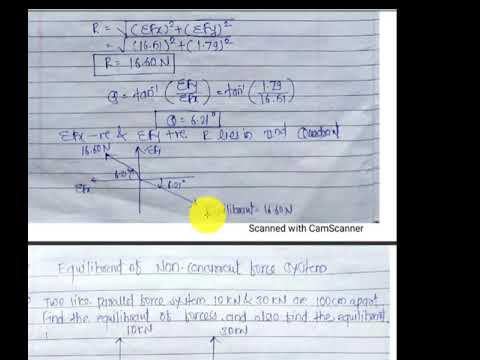 R = √(ΣFx)² + (ΣFy)²
= √(16.51)² + (1.79)²
R = 16.60 N
θ = tan⁻¹ (ΣFy/ΣFx) = tan⁻¹ (1.79/16.51)
θ = 6.21°
ΣFx -ve & ΣFy +ve R lies in 2nd Quadrant
16.60N ΣFy
6.21°
ΣFx 6.21°
Equilibrant = 16.60N
Scanned with CamScanner
Equilibrant of Non-concurrent force system
Two like parallel force system 10 KN & 30 KN are 100cm apart
Find the equilibrant of forces and also find the equilibrant
10KN 30KN